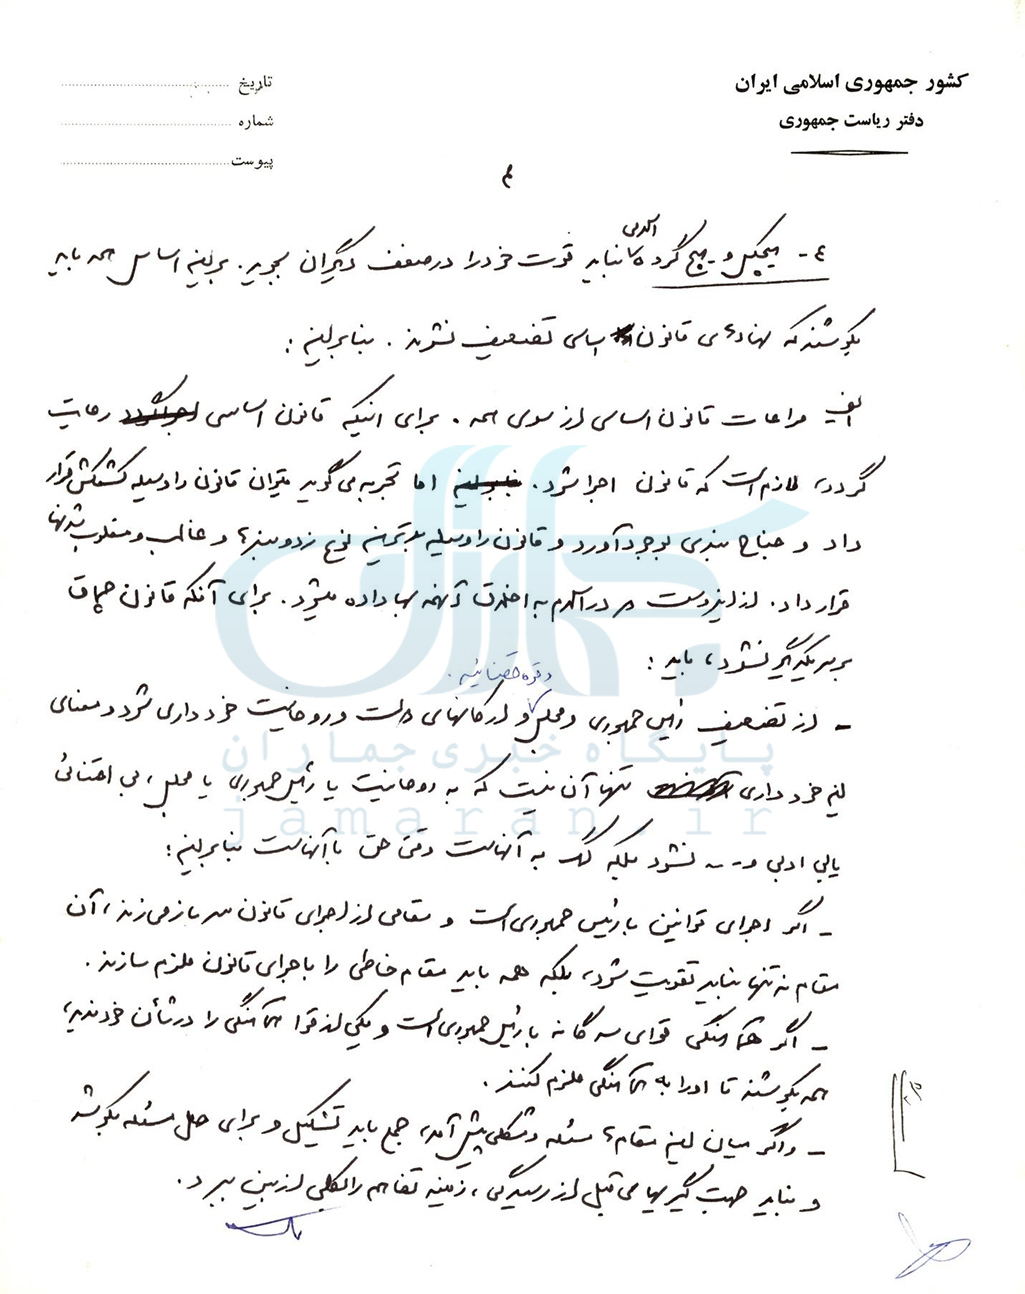 کشور جمهوری اسلامی ایران
دفتر ریاست جمهوری
تاریخ
شماره
پیوست
۴
۴- هیچکس و هیچ گروه اسلامی نباید قوت خود را در ضعف دیگران بجوید. براین اساس همه باید
بکوشند که نهادهای قانون اساسی تضعیف نشوند. بنابراین:
الف مراعات قانون اساسی از سوی همه. برای اینکه قانون اساسی رعایت
گردد، لازم است که قانون اجرا شود. اما تجربه می گوید میتوان قانون را وسیله کشمکش قرار
داد و جناح بندی بوجود آورد و قانون را وسیله بدترین نوع زد و بندها و غالب و مغلوب شدنها
قرار داد. از اینروست که در اسلام به اخلاق اینهمه بها داده میشود. برای آنکه قانون چماق
بر سر یکدیگر نشود، باید:
و قوه قضائیه.
- از تضعیف رئیس جمهوری و مجلس و ارگانهای دولت و روحانیت خودداری شود و معنای
این خودداری تنها آن نیست که به روحانیت یا رئیس جمهوری یا مجلس، بی اعتنائی
یا بی ادبی و -- نشود بلکه کمک به آنهاست وقتی حق با آنهاست بنابراین:
- اگر اجرای قوانین با رئیس جمهوری است و مقامی از اجرای قانون سر باز می زند، آن
مقام نه تنها نباید تقویت شود، بلکه همه باید مقام خاطی را باجرای قانون ملزم سازند.
- اگر هماهنگی قوای سه گانه با رئیس جمهوری است و یکی از قوا هماهنگی را در شأن خود ندید،
همه بکوشند تا او را به هماهنگی ملزم کنند.
- و اگر میان این مقامها مسئله و مشکلی پیش آمد، جمع باید تشکیل و برای حل مسئله بکوشد
و نباید جهت گیریهای قبل از رسیدگی، زمینه تفاهم را بکلی از بین ببرد.
پایگاه خبری جماران
jamaran.ir